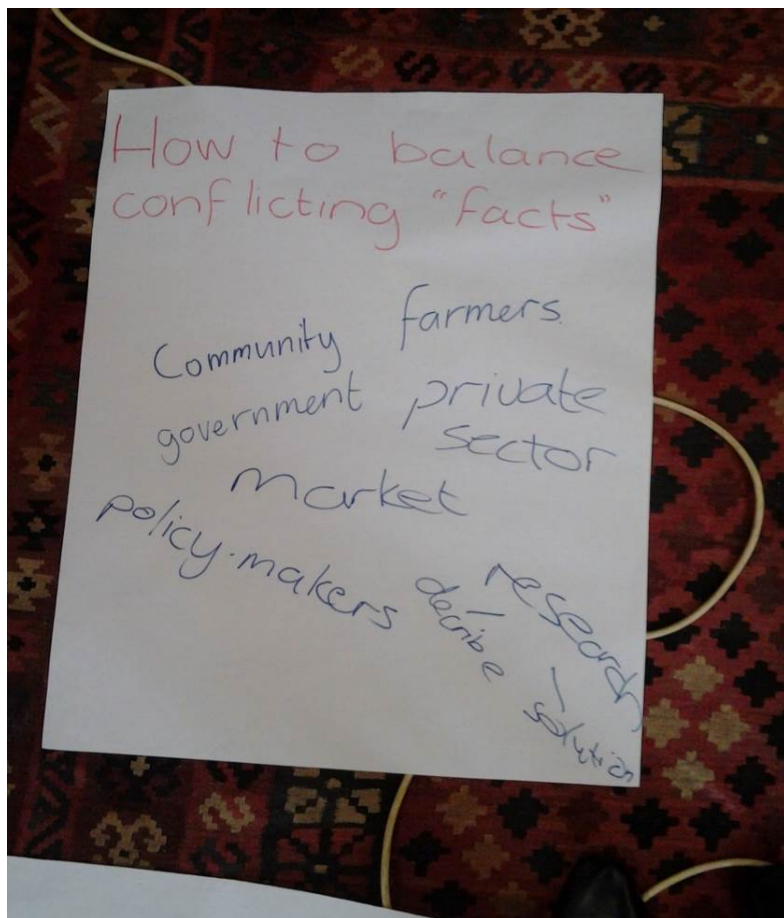 How to balance
conflicting "facts"
Community farmers
government private
sector
market
policy-makers
research
decribe
solution